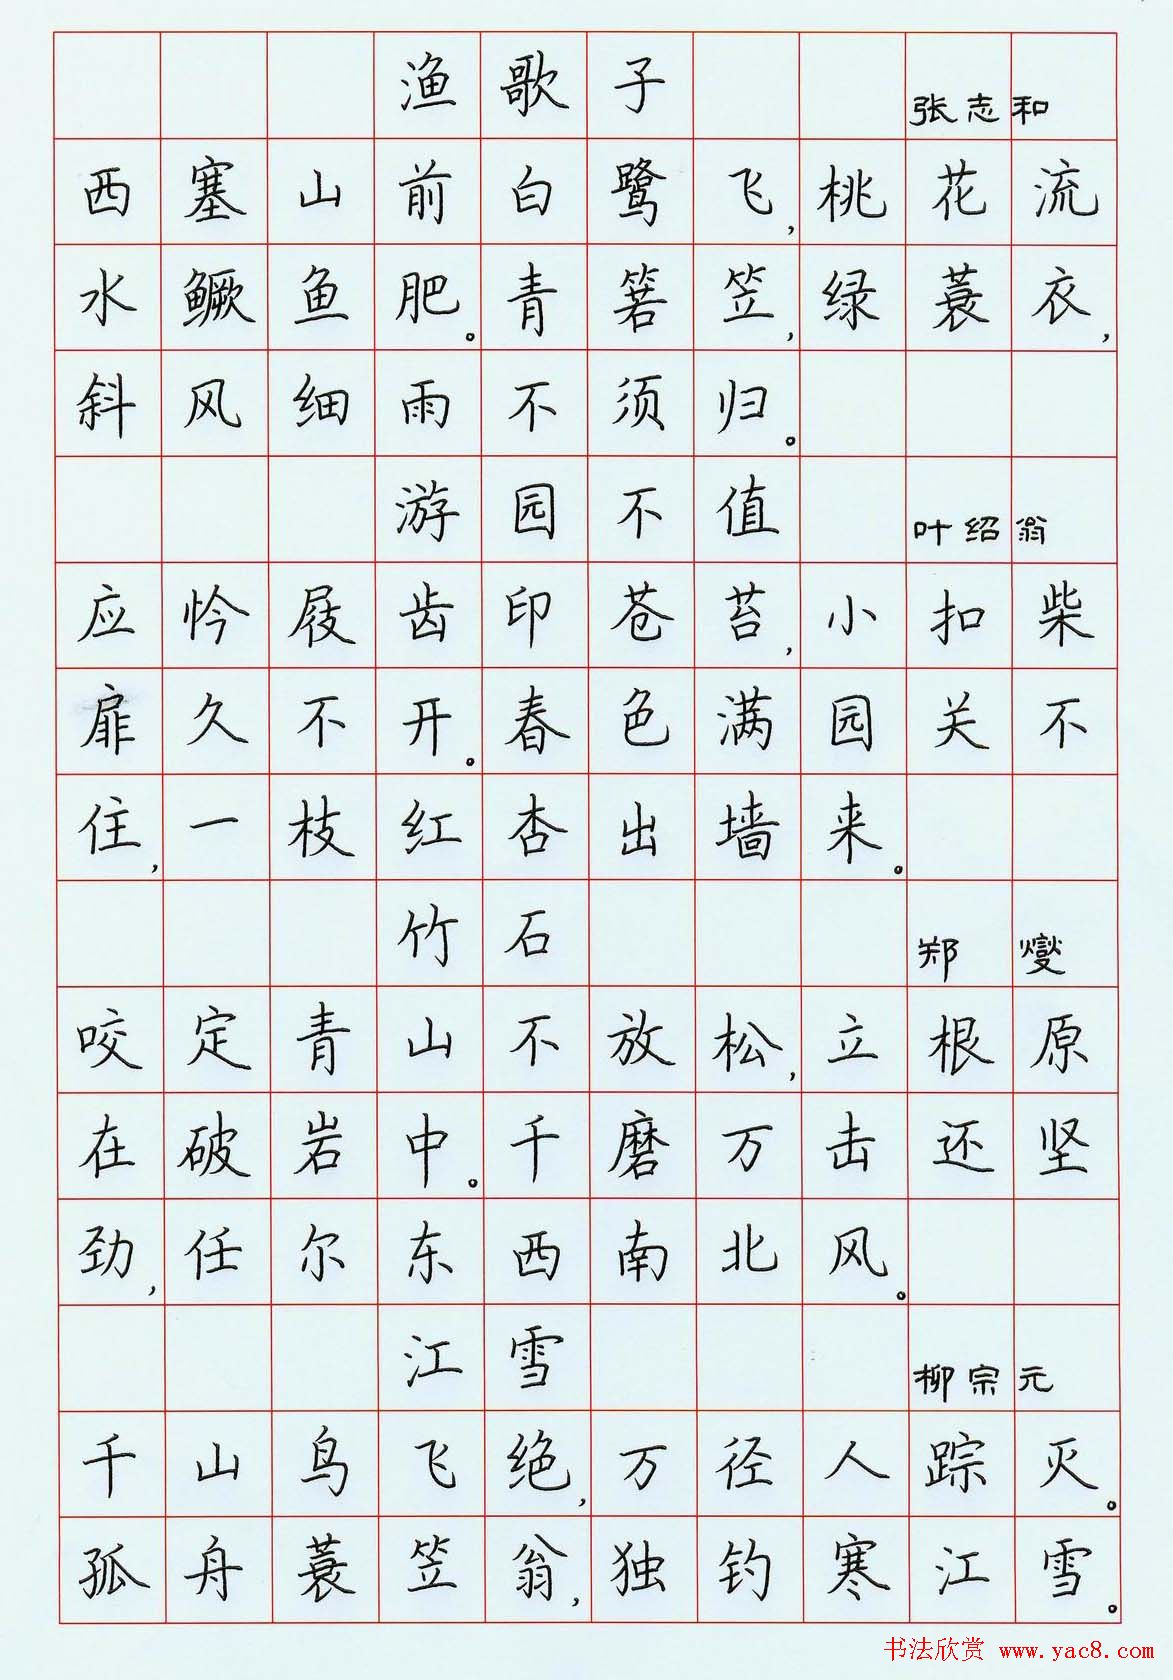 渔歌子 张志和
西塞山前白鹭飞,桃花流
水鳜鱼肥。青箬笠,绿蓑衣,
斜风细雨不须归。
游园不值 叶绍翁
应怜屐齿印苍苔,小扣柴
扉久不开。春色满园关不
住,一枝红杏出墙来。
竹石 郑燮
咬定青山不放松,立根原
在破岩中。千磨万击还坚
劲,任尔东西南北风。
江雪 柳宗元
千山鸟飞绝,万径人踪灭。
孤舟蓑笠翁,独钓寒江雪。
书法欣赏 www.yac8.com